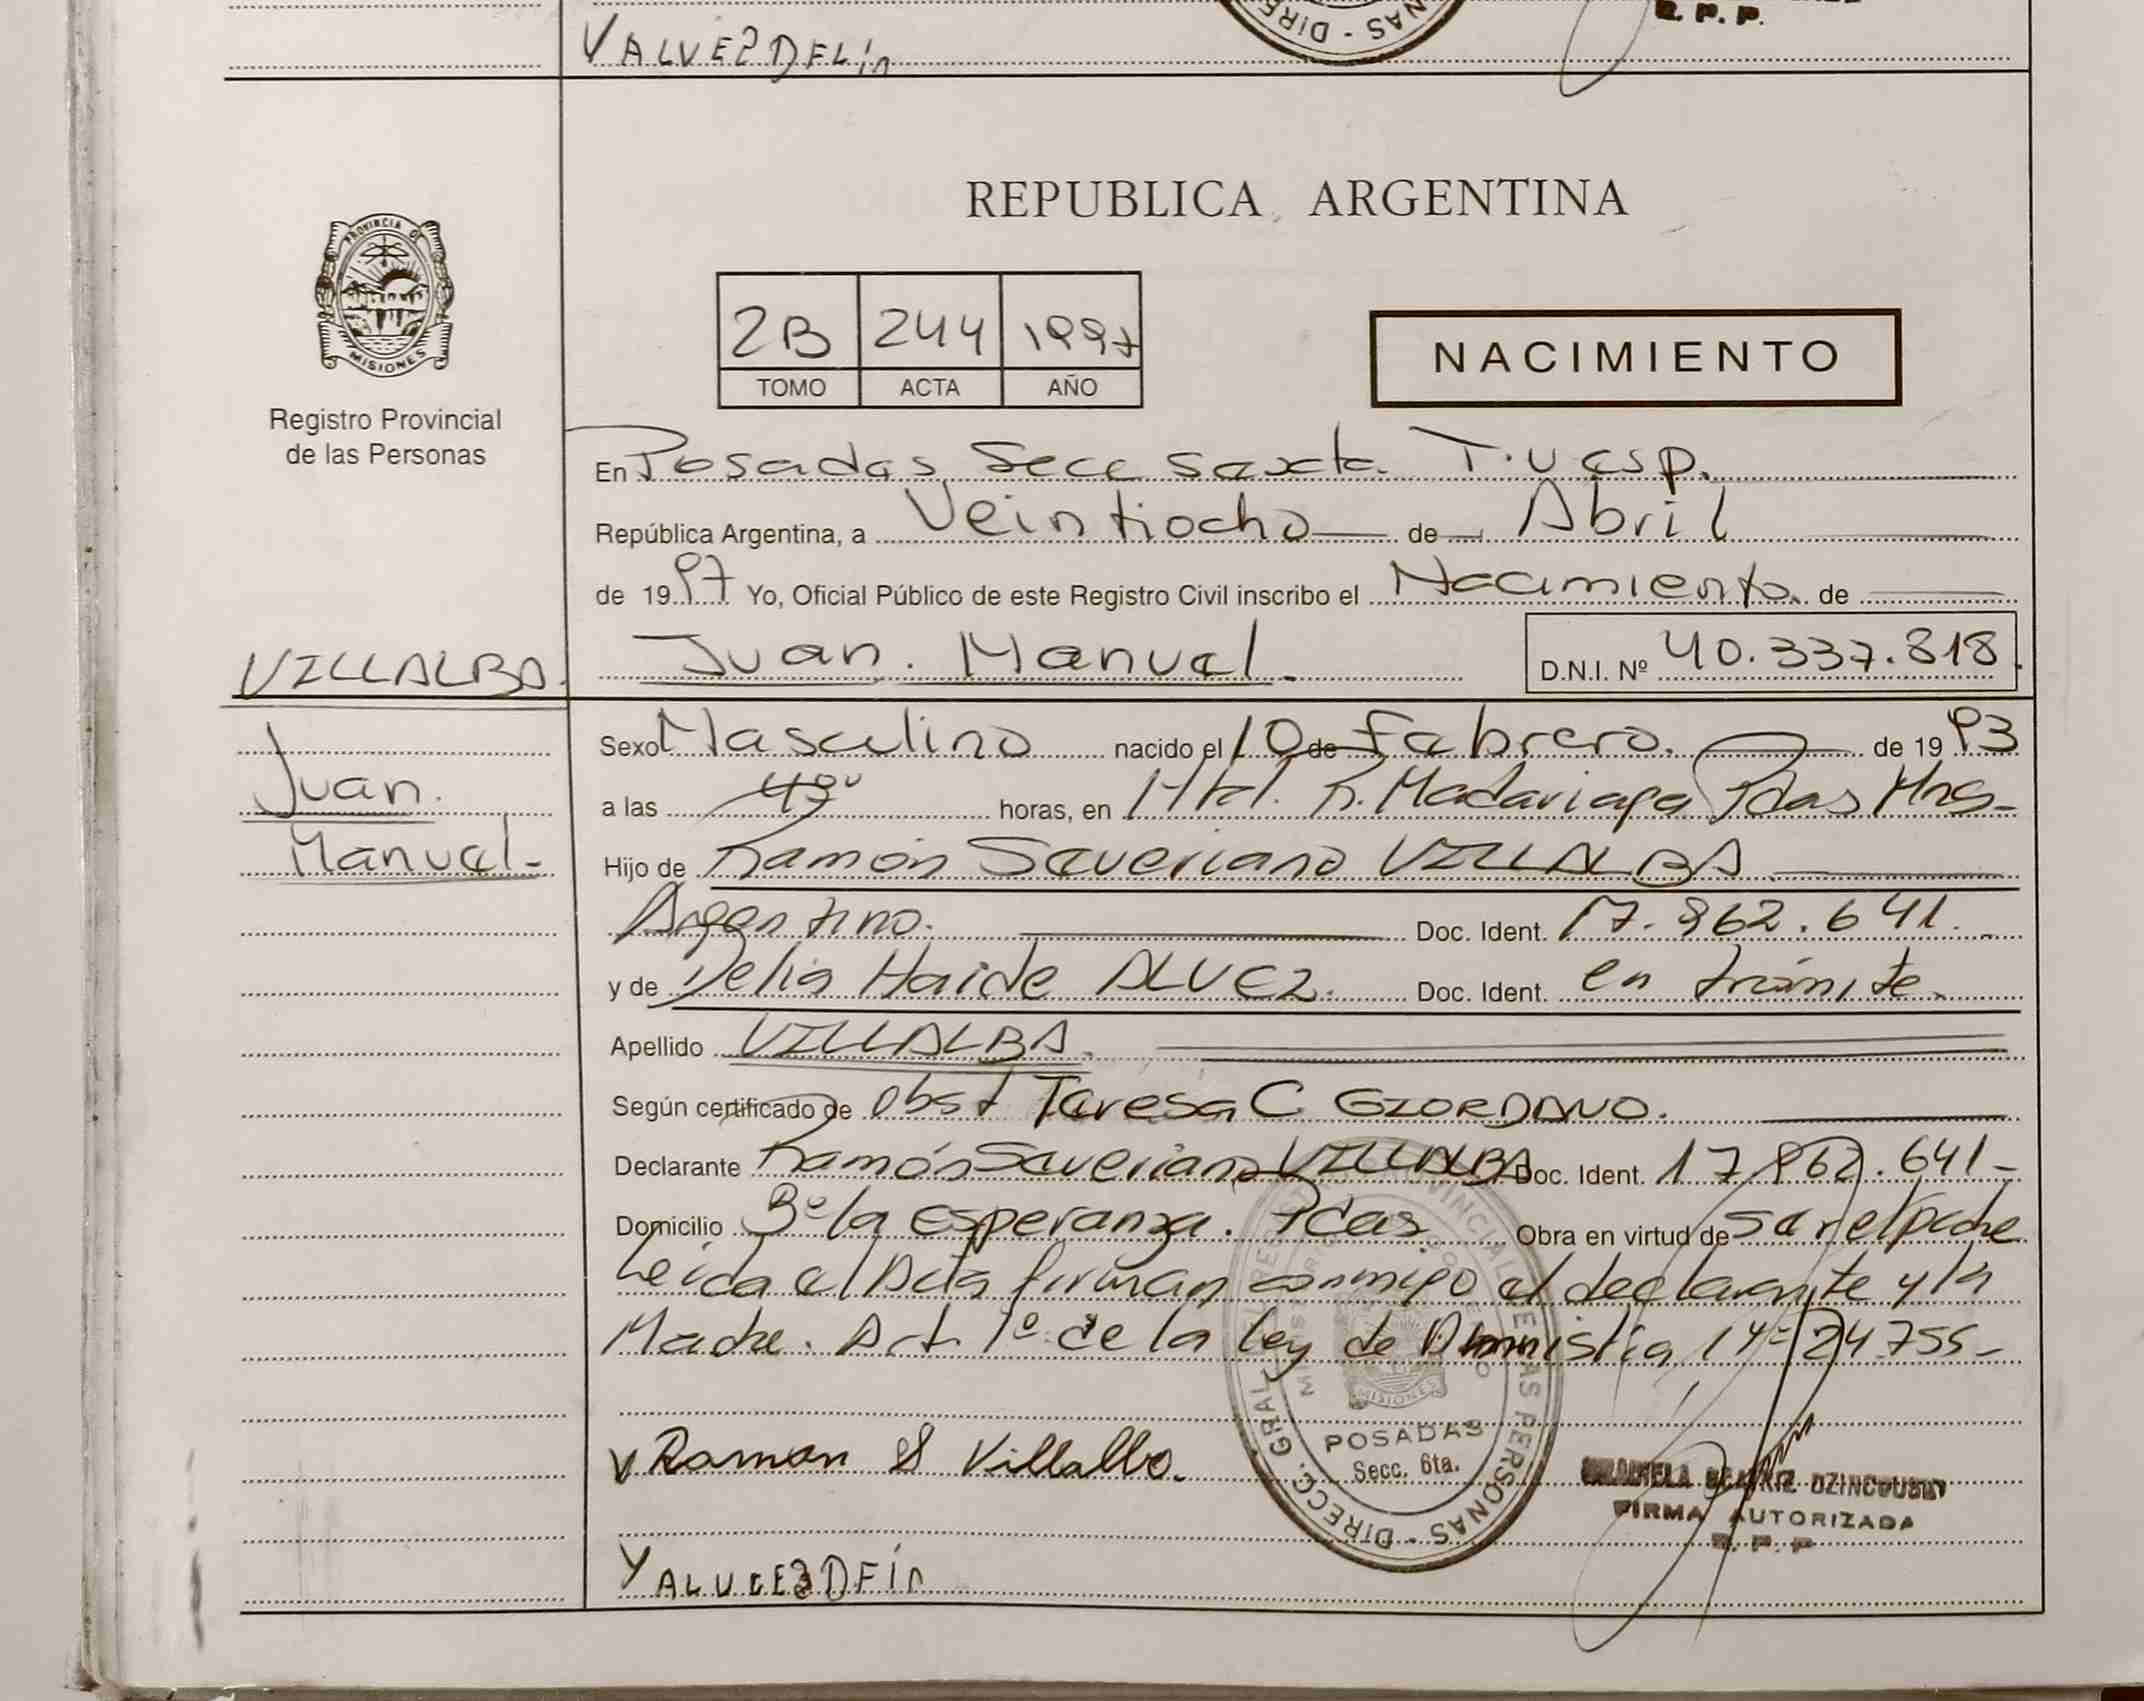 VALVEZ DELin
R. P. P.
REPUBLICA ARGENTINA
PROVINCIA DE
MISIONES
Registro Provincial
de las Personas
2B 244 1997
TOMO ACTA AÑO
NACIMIENTO
En Posadas Secc Sexta.
República Argentina, a Veintiocho de Abril
de 1997 Yo, Oficial Público de este Registro Civil inscribo el Nacimiento de
VILLALBA. Juan. Manuel. D.N.I. Nº 40.337.818.
Juan.
Manuel-
Sexo Masculino nacido el 10 de Febrero. de 1993
a las horas, en Htal. R. Madariaga Pdas Mns-
Hijo de Ramón Severiano VILLALBA
Argentino. Doc. Ident. 17.862.641.
y de Delia Haide ALVEZ. Doc. Ident. en trámite.
Apellido VILLALBA.
Según certificado de obst Teresa C GIORDANO.
Declarante Ramón Severiano VILLALBA Doc. Ident. 17.862.641-
Domicilio Bº la esperanza. Pdas. Obra en virtud de ser el padre
Leída el Acta firman conmigo el declarante y la
Madre. Art. 1º de la Ley de Amnistia Nº 24.755-
Ramon S Villalba.
POSADAS
Secc. 6ta.
BEATRIZ DZINCOUSKI
FIRMA AUTORIZADA
R. P. P